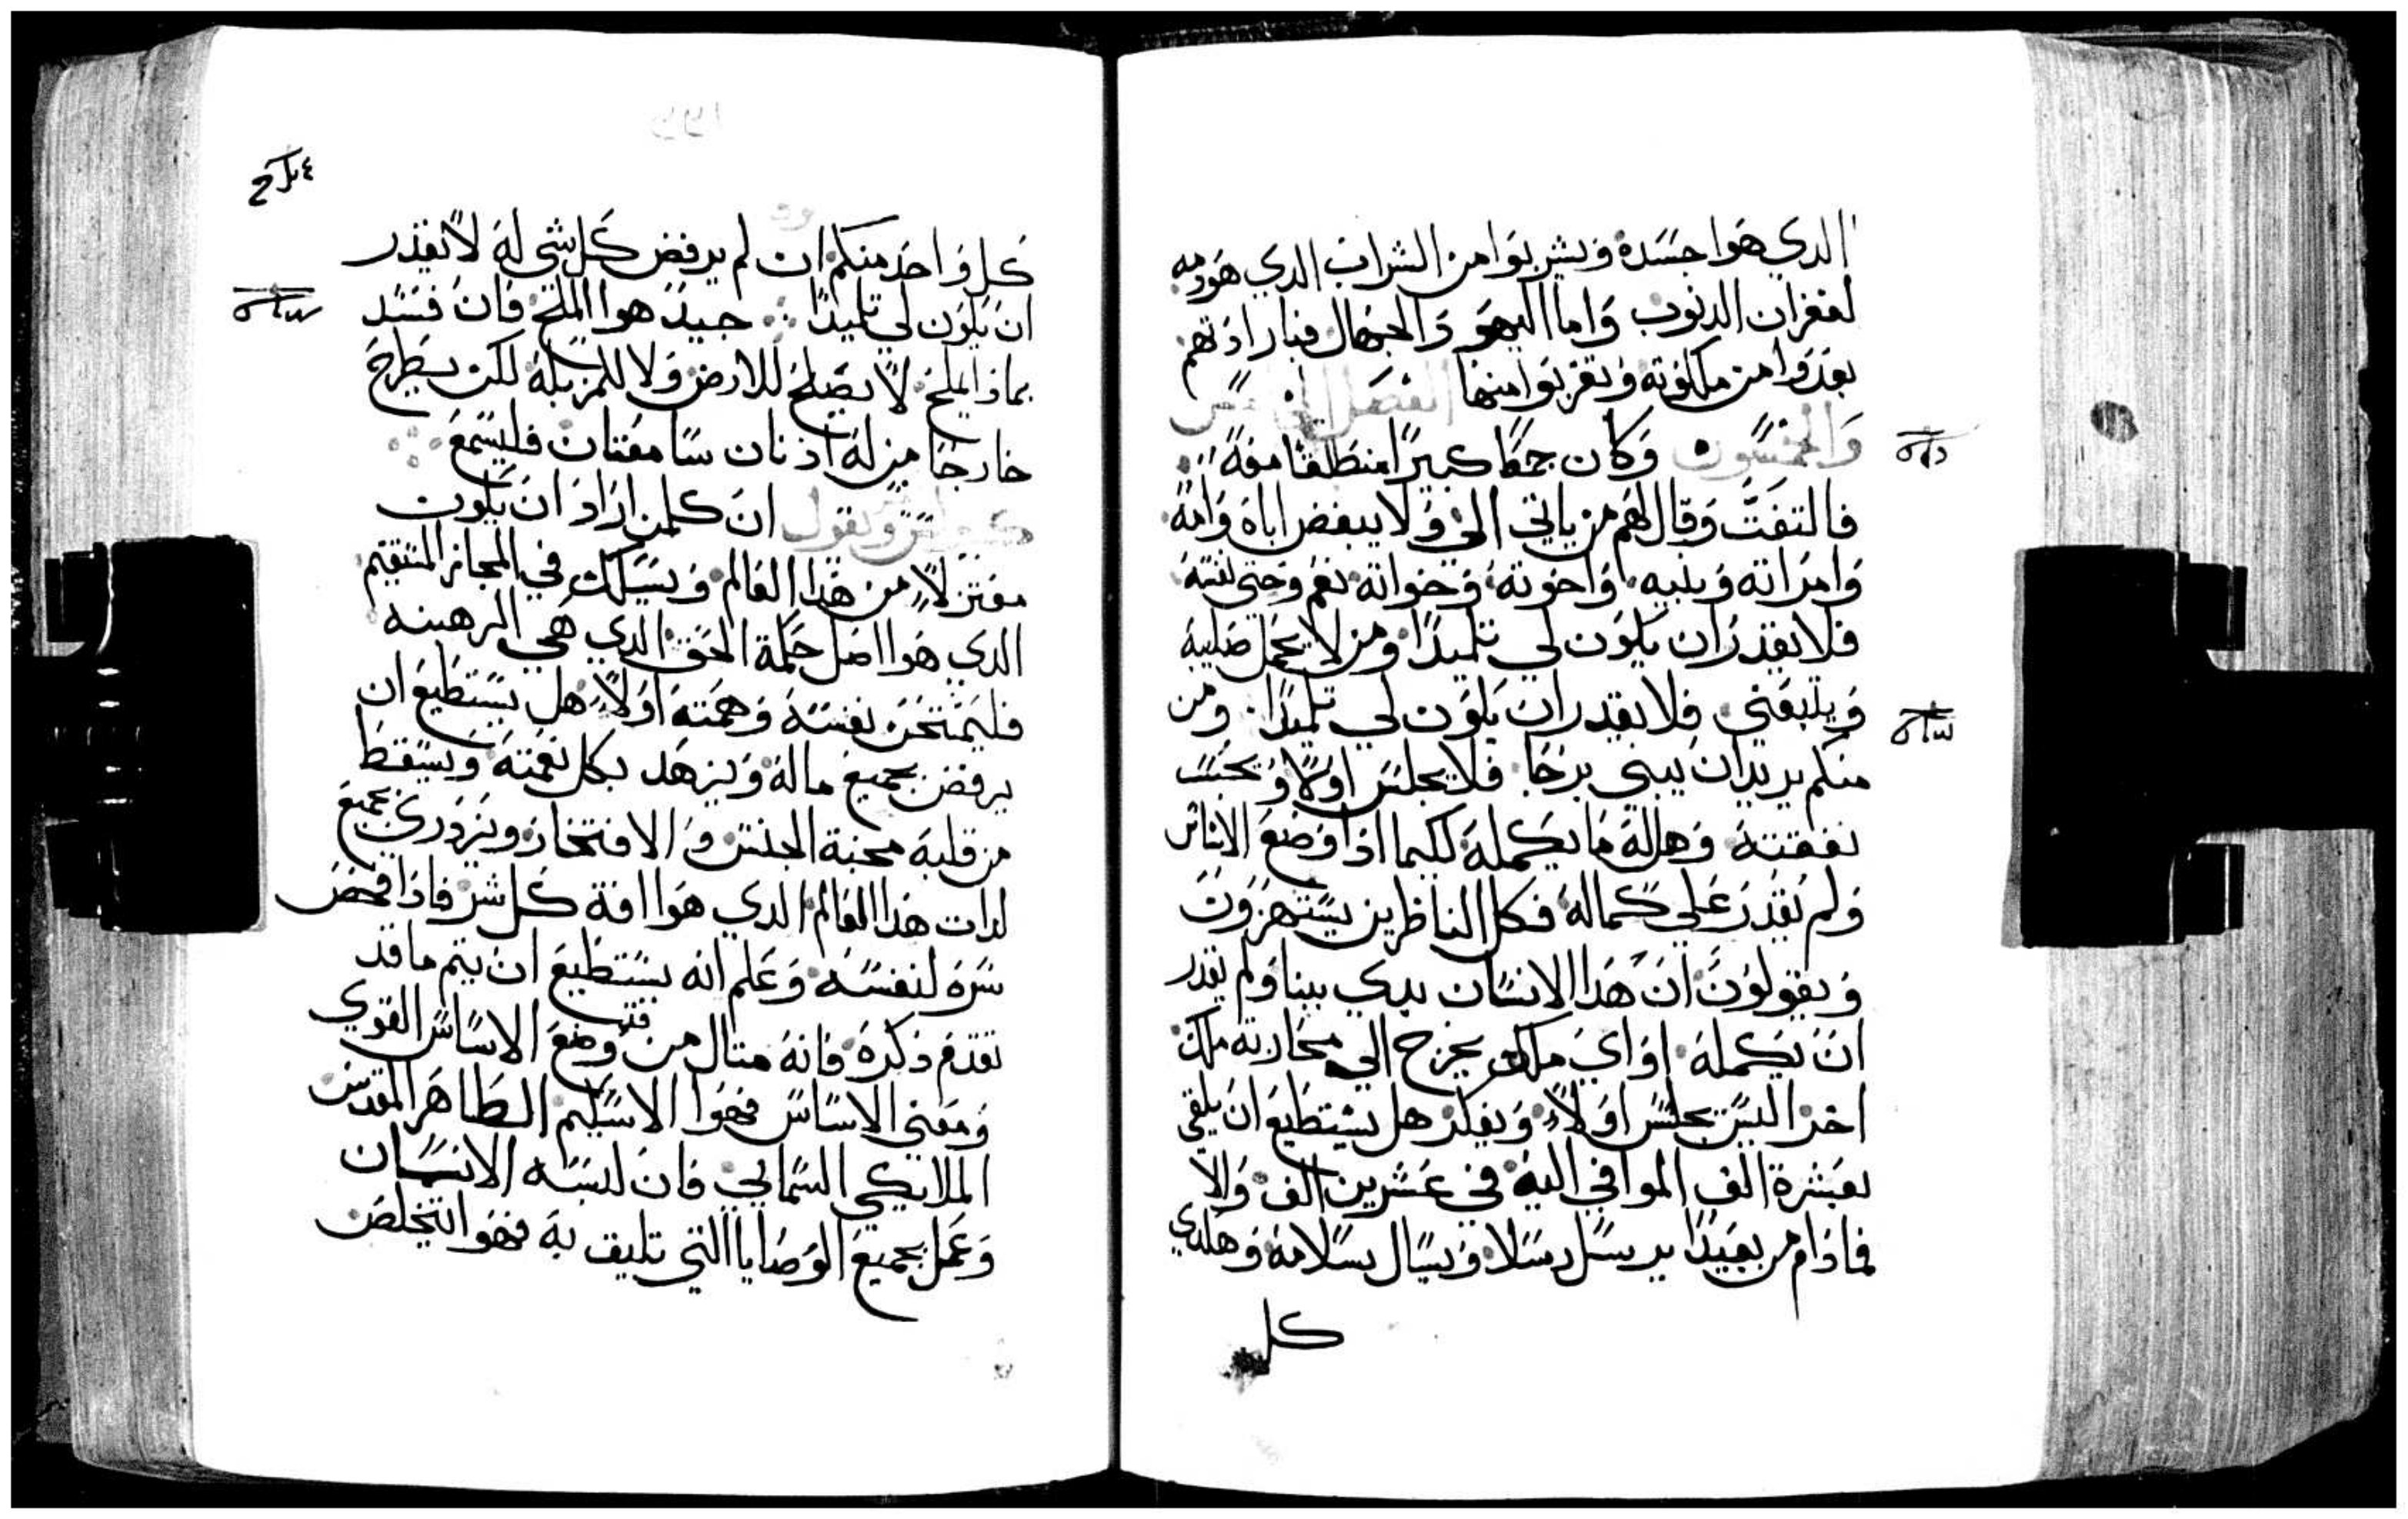 الدي هوا جسده ويشربوا من الشراب الدي هو دمه
لغفران الدنوب واما اليهو والجهال فبارادتهم
بعدوا من ملكوته وتغربوا منها الفصل
والخمسون وكان جمعًا كبيرًا منطلقا معه
فالتفت وقال لهم من ياتي الي ولا يبغض اباه وامه
وامراته وبنيه واخوته وخواته نعم وحتى نفسه
فلا يقدر ان يكون لي تلميدًا ومن لا يحمل صليبه
ويتبعني فلا يقدر ان يكون لي تلميدًا ومن
منكم يريد ان يبني برجًا فلا يجلس اولًا ويحسب
نفقته وهل له ما يكمله لكيما ادا وضع الاساس
ولم يقدر علي كماله فكل الناظرين يستهزون
ويقولون ان هدا الانسان بدي يبنا ولم يقدر
ان يكمله او اي ملك يخرج الي محاربة ملك
اخر اليس يجلس اولاً ويفكر هل يستطيع ان يلقي
بعشرة الف الموافي اليه في عشرين الف والا
فما دام من بعيدًا يرسل رسلا ويسال سلامه وهكدي
كل
كل واحد منكم ان لم يرفض كل شي له لا يقدر
ان يكون لي تلميدًا جيد هوا الملح فان فسد
بمادا يملح لا يصلح للارض ولا للمزبلة لكن يطرح
خارجًا من له ادنان سامعتان فليسمع
ويقول ان كلمن اراد ان يكون
معتزلاً من هدا العالم ويسلك في المجاز المستقيم
الدي هوا اصل حكمة الحق الدي هي الرهبنه
فليمتحن نفسه وهمته اولاً هل يستطيع ان
يرفض بجميع ماله ويزهد بكل نعمته ويسقط
من قلبه محبة الجنس والافتخار ويزدري بجميع
لدات هدا العالم الدي هوا افة كل شر فادا فحص
سره لنفسه وعلم انه يستطيع ان يتم ما قد
تقدم دكره فانه متال من وضع الاساس القوي
ومعني الاساس فهوا الاسكيم الطاهر المقدس
الملايكي السمايي فان لبسه الانسان
وعمل بجميع الوصايا التي تليق به فهوا يتخلص